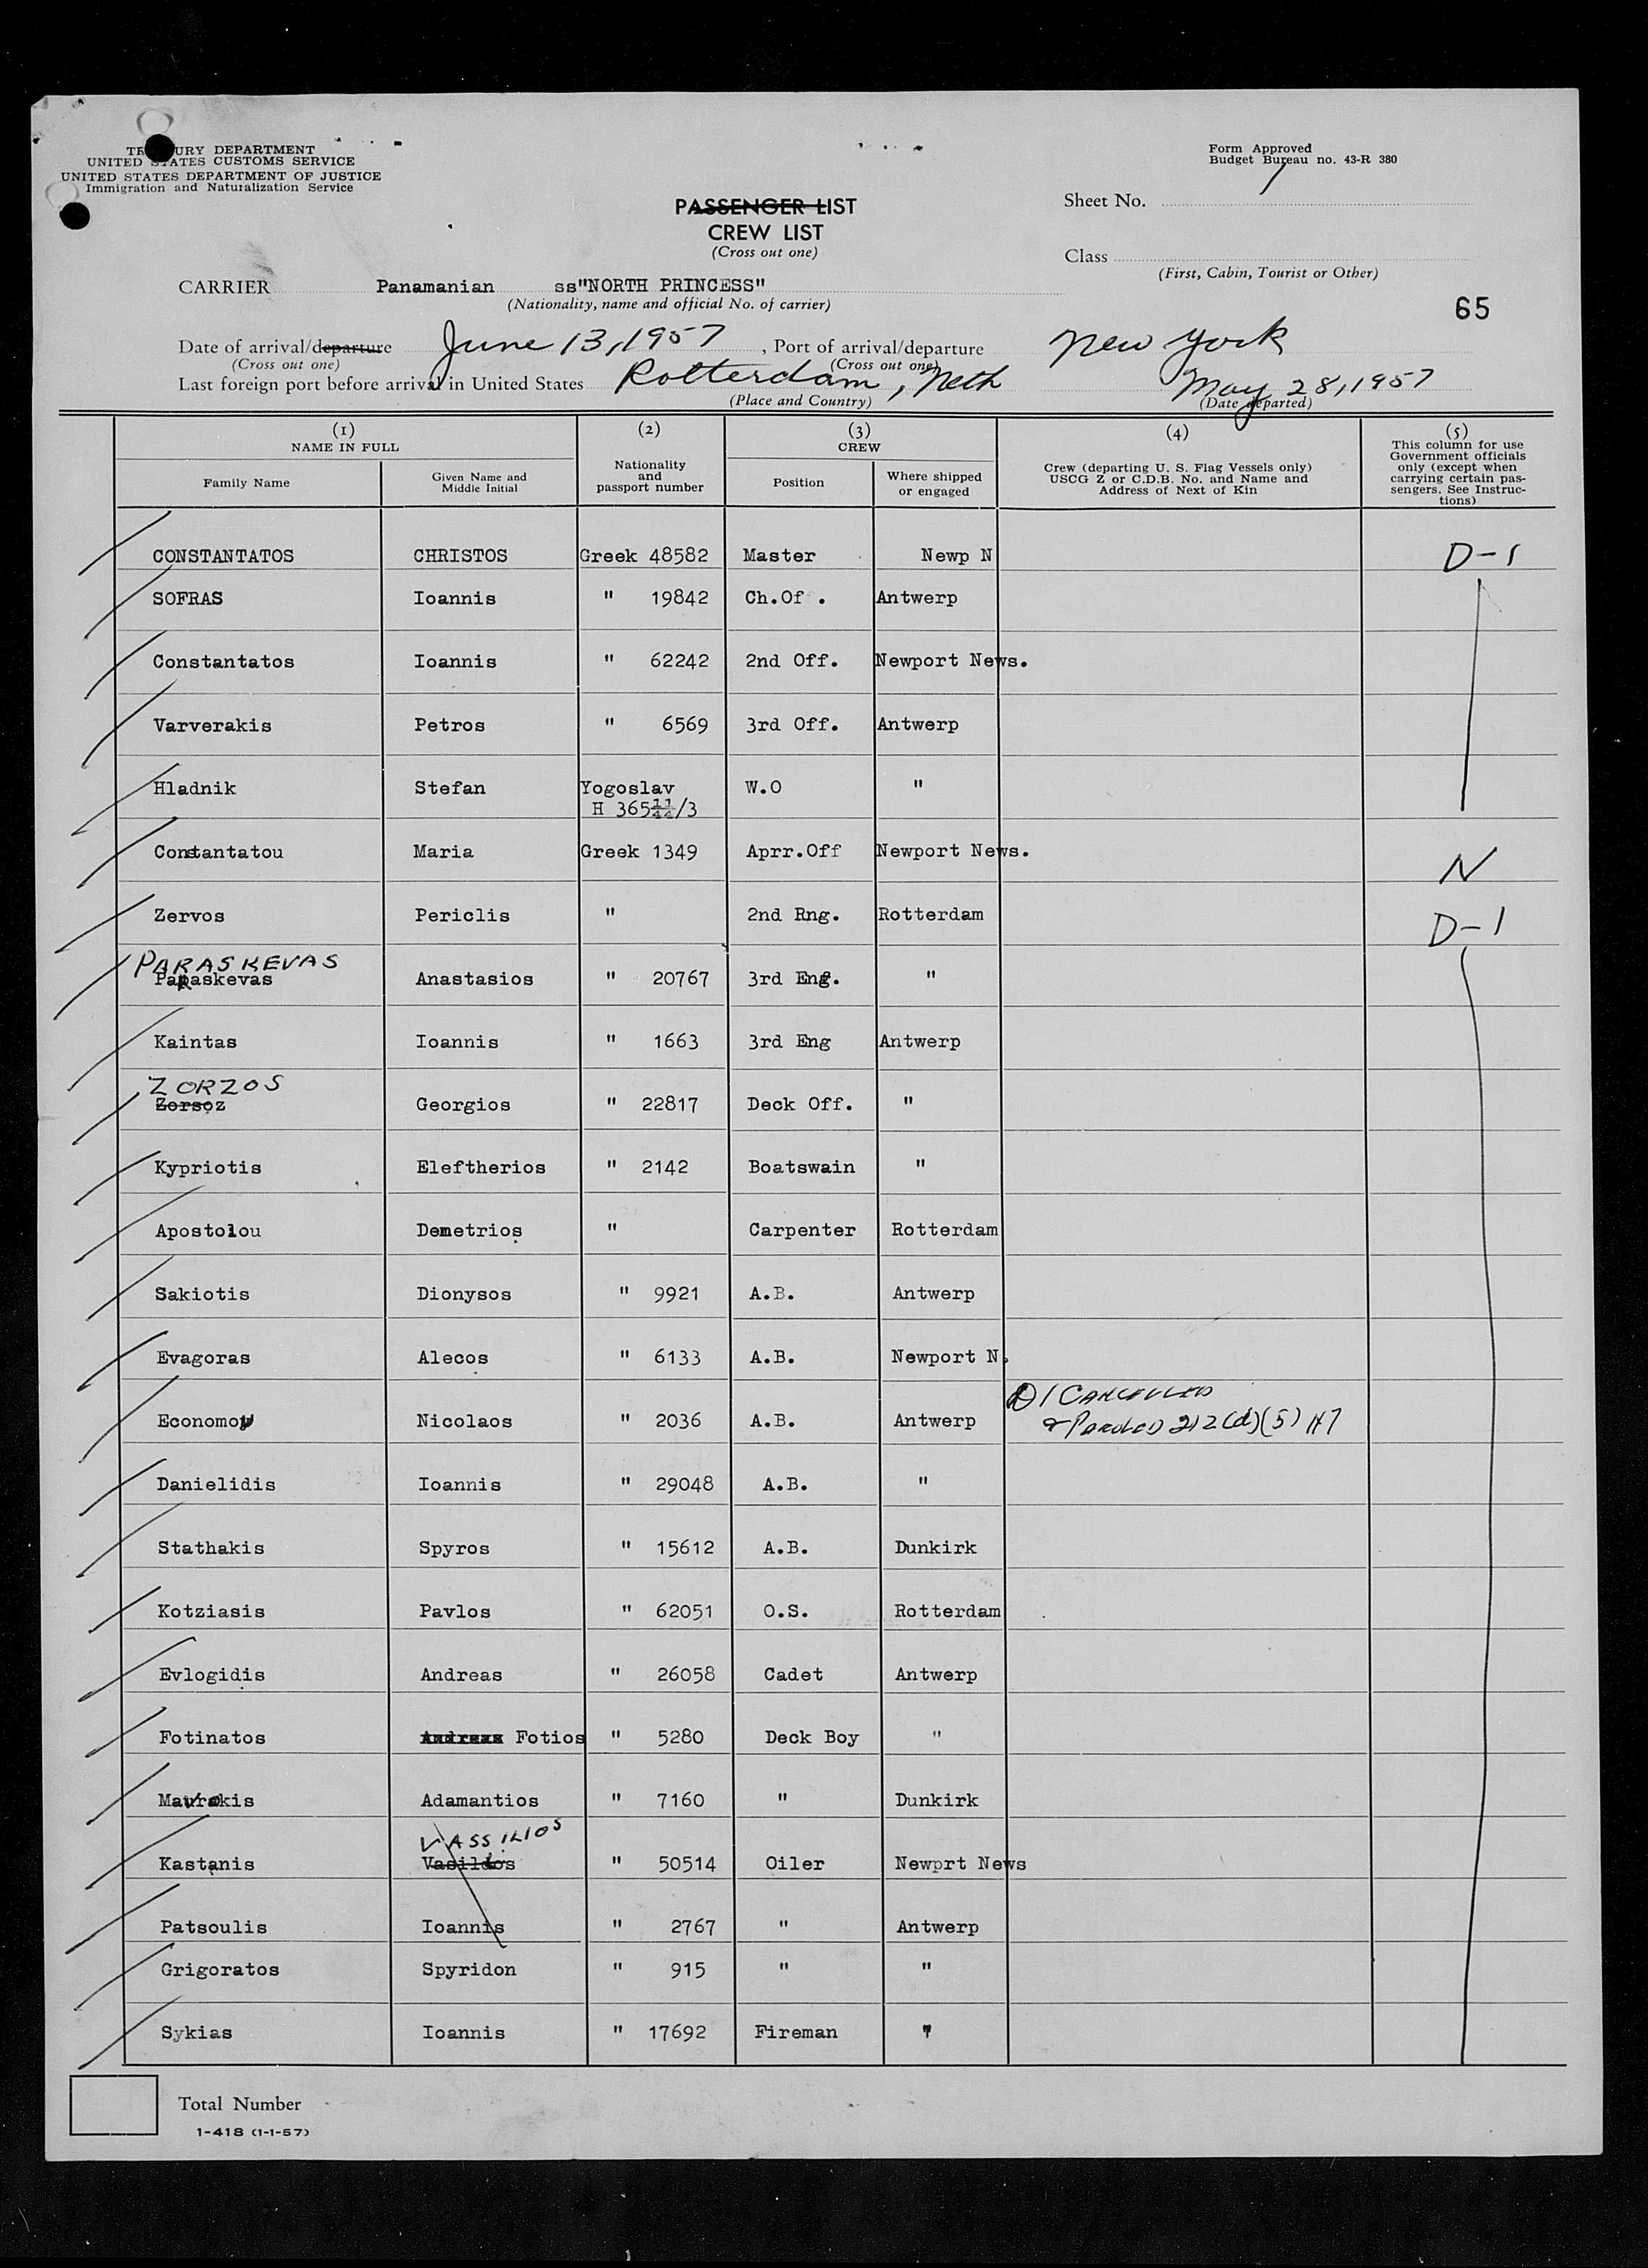 TREASURY DEPARTMENT
UNITED STATES CUSTOMS SERVICE
UNITED STATES DEPARTMENT OF JUSTICE
Immigration and Naturalization Service
Form Approved
Budget Bureau no. 43-R 380
Sheet No. 1
PASSENGER LIST
CREW LIST
(Cross out one)
Class
(First, Cabin, Tourist or Other)
CARRIER Panamanian ss"NORTH PRINCESS"
(Nationality, name and official No. of carrier)
65
Date of arrival/departure June 13, 1957, Port of arrival/departure New York
(Cross out one) (Cross out one)
Last foreign port before arrival in United States Rotterdam, Neth May 28, 1957
(Place and Country) (Date departed)
(1) NAME IN FULL
Family Name
Given Name and Middle Initial
(2) Nationality and passport number
(3) CREW
Position
Where shipped or engaged
(4) Crew (departing U. S. Flag Vessels only) USCG Z or C.D.B. No. and Name and Address of Next of Kin
(5) This column for use Government officials only (except when carrying certain passengers. See Instructions)
CONSTANTATOS CHRISTOS Greek 48582 Master Newp N D-1
SOFRAS Ioannis " 19842 Ch.Of . Antwerp
Constantatos Ioannis " 62242 2nd Off. Newport News.
Varverakis Petros " 6569 3rd Off. Antwerp
Hladnik Stefan Yogoslav W.O "
H 365 11/44/3
Constantatou Maria Greek 1349 Aprr.Off Newport News. N
Zervos Periclis " 2nd Rng. Rotterdam D-1
PARASKEVAS
Paraskevas Anastasios " 20767 3rd Eng. "
Kaintas Ioannis " 1663 3rd Eng Antwerp
ZORZOS
Zorsoz Georgios " 22817 Deck Off. "
Kypriotis Eleftherios " 2142 Boatswain "
Apostolou Demetrios " Carpenter Rotterdam
Sakiotis Dionysos " 9921 A.B. Antwerp
Evagoras Alecos " 6133 A.B. Newport N.
D1 CANCELLED
Economou Nicolaos " 2036 A.B. Antwerp & PAROLED 212(d)(5)
Danielidis Ioannis " 29048 A.B. "
Stathakis Spyros " 15612 A.B. Dunkirk
Kotziasis Pavlos " 62051 O.S. Rotterdam
Evlogidis Andreas " 26058 Cadet Antwerp
Fotinatos Andreas Fotios " 5280 Deck Boy "
Mavrakis Adamantios " 7160 " Dunkirk
VASSILIOS
Kastanis Vasildos " 50514 Oiler Newprt News
Patsoulis Ioannis " 2767 " Antwerp
Grigoratos Spyridon " 915 " "
Sykias Ioannis " 17692 Fireman "
Total Number
1-418 (1-1-57)